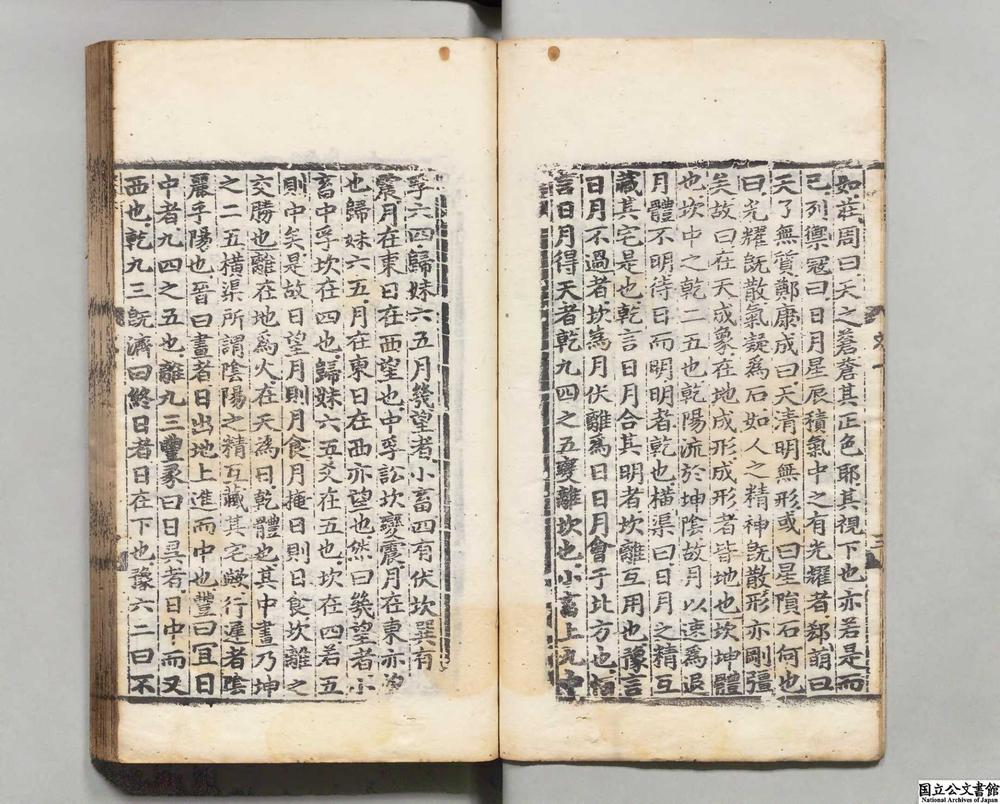 如莊周曰天之蒼蒼其正色耶其視下也亦若是而
已列禦冦曰日月星辰積氣中之有光耀者郄萌曰
天了無質鄭康成曰天清明無形或曰星隕石何也
曰光耀旣散氣凝爲石如人之精神旣散形亦剛彊
矣故曰在天成象在地成形成形者皆地也坎坤體
也坎中之乾二五也乾陽流於坤陰故月以速爲退
月體不明待日而明明者乾也橫渠曰日月之精互
藏其宅是也乾言日月合其明者坎離互用也豫言
日月不過者坎爲月伏離爲日日月會于北方也恒
言日月得天者乾九四之五變離坎也小畜上九中
孚六四歸妹六五月幾望者小畜四有伏坎巽有
震月在東日在西望也中孚訟坎變震月在東亦望
也歸妹六五月在東日在西亦望也然曰幾望者小
畜中孚坎在四也歸妹六五爻在五也坎在四若五
則中矣是故日望月則月食月掩日則日食坎離之
交勝也離在地爲火在天爲日乾體也其中畫乃坤
之二五橫渠所謂陰陽之精互藏其宅歟行遲者陰
麗乎陽也晉曰晝者日出地上進而中也豐曰宜日
中者九四之五也離九三豐彖曰日昃者日中而又
西也乾九三旣濟曰終日者日在下也豫六二曰不
三
国立公文書館
National Archives of Japan